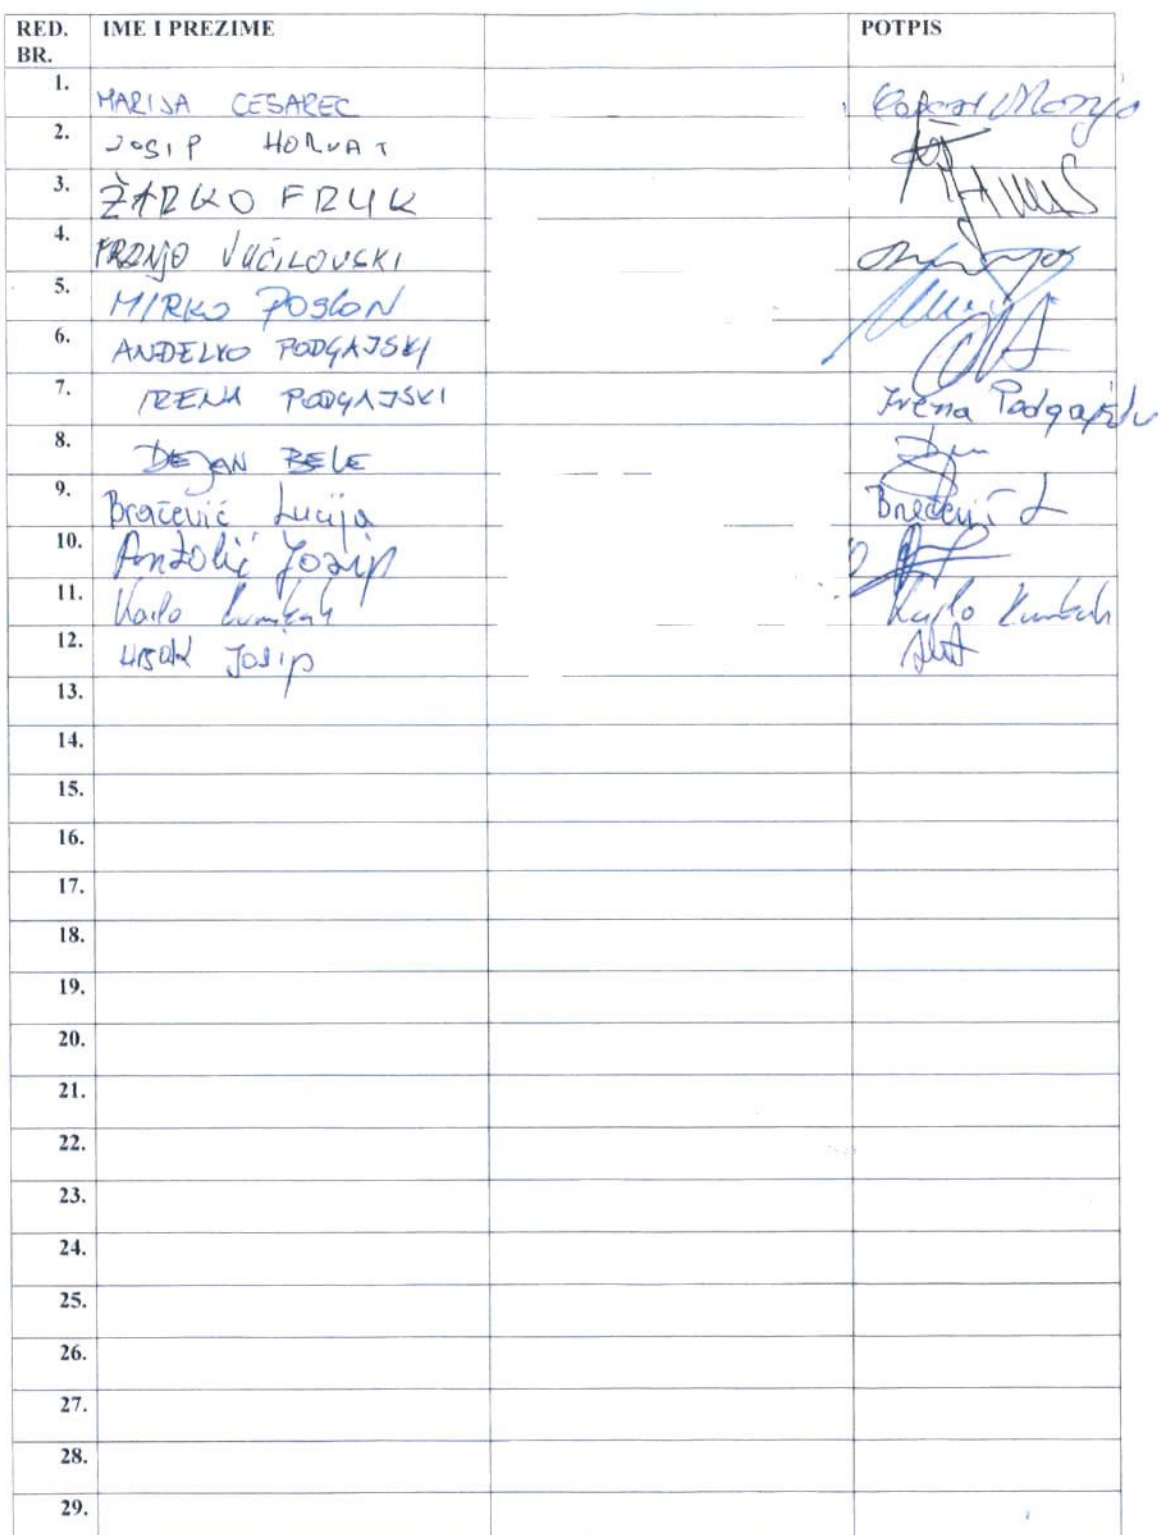 RED. BR. IME I PREZIME POTPIS
1. MARIJA CESAREC
2. JOSIP HORVAT
3. ŽARKO FRUK
4. FRANJO VUČILOVSKI
5. MIRKO POSLON
6. ANĐELKO PODGAJSKI
7. IRENA PODGAJSKI Irena Podgajski
8. DEJAN BELE
9. Bračević Lucija
10. Antolić Josip
11. Karlo Karlo
12. Josip
13.
14.
15.
16.
17.
18.
19.
20.
21.
22.
23.
24.
25.
26.
27.
28.
29.